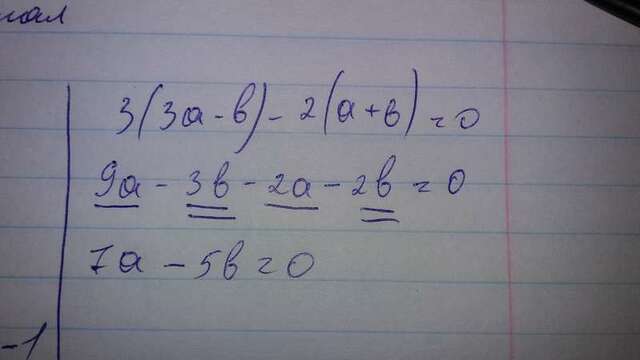 3(3a-b)-2(a+b)=0
9a-3b-2a-2b=0
7a-5b=0
-1